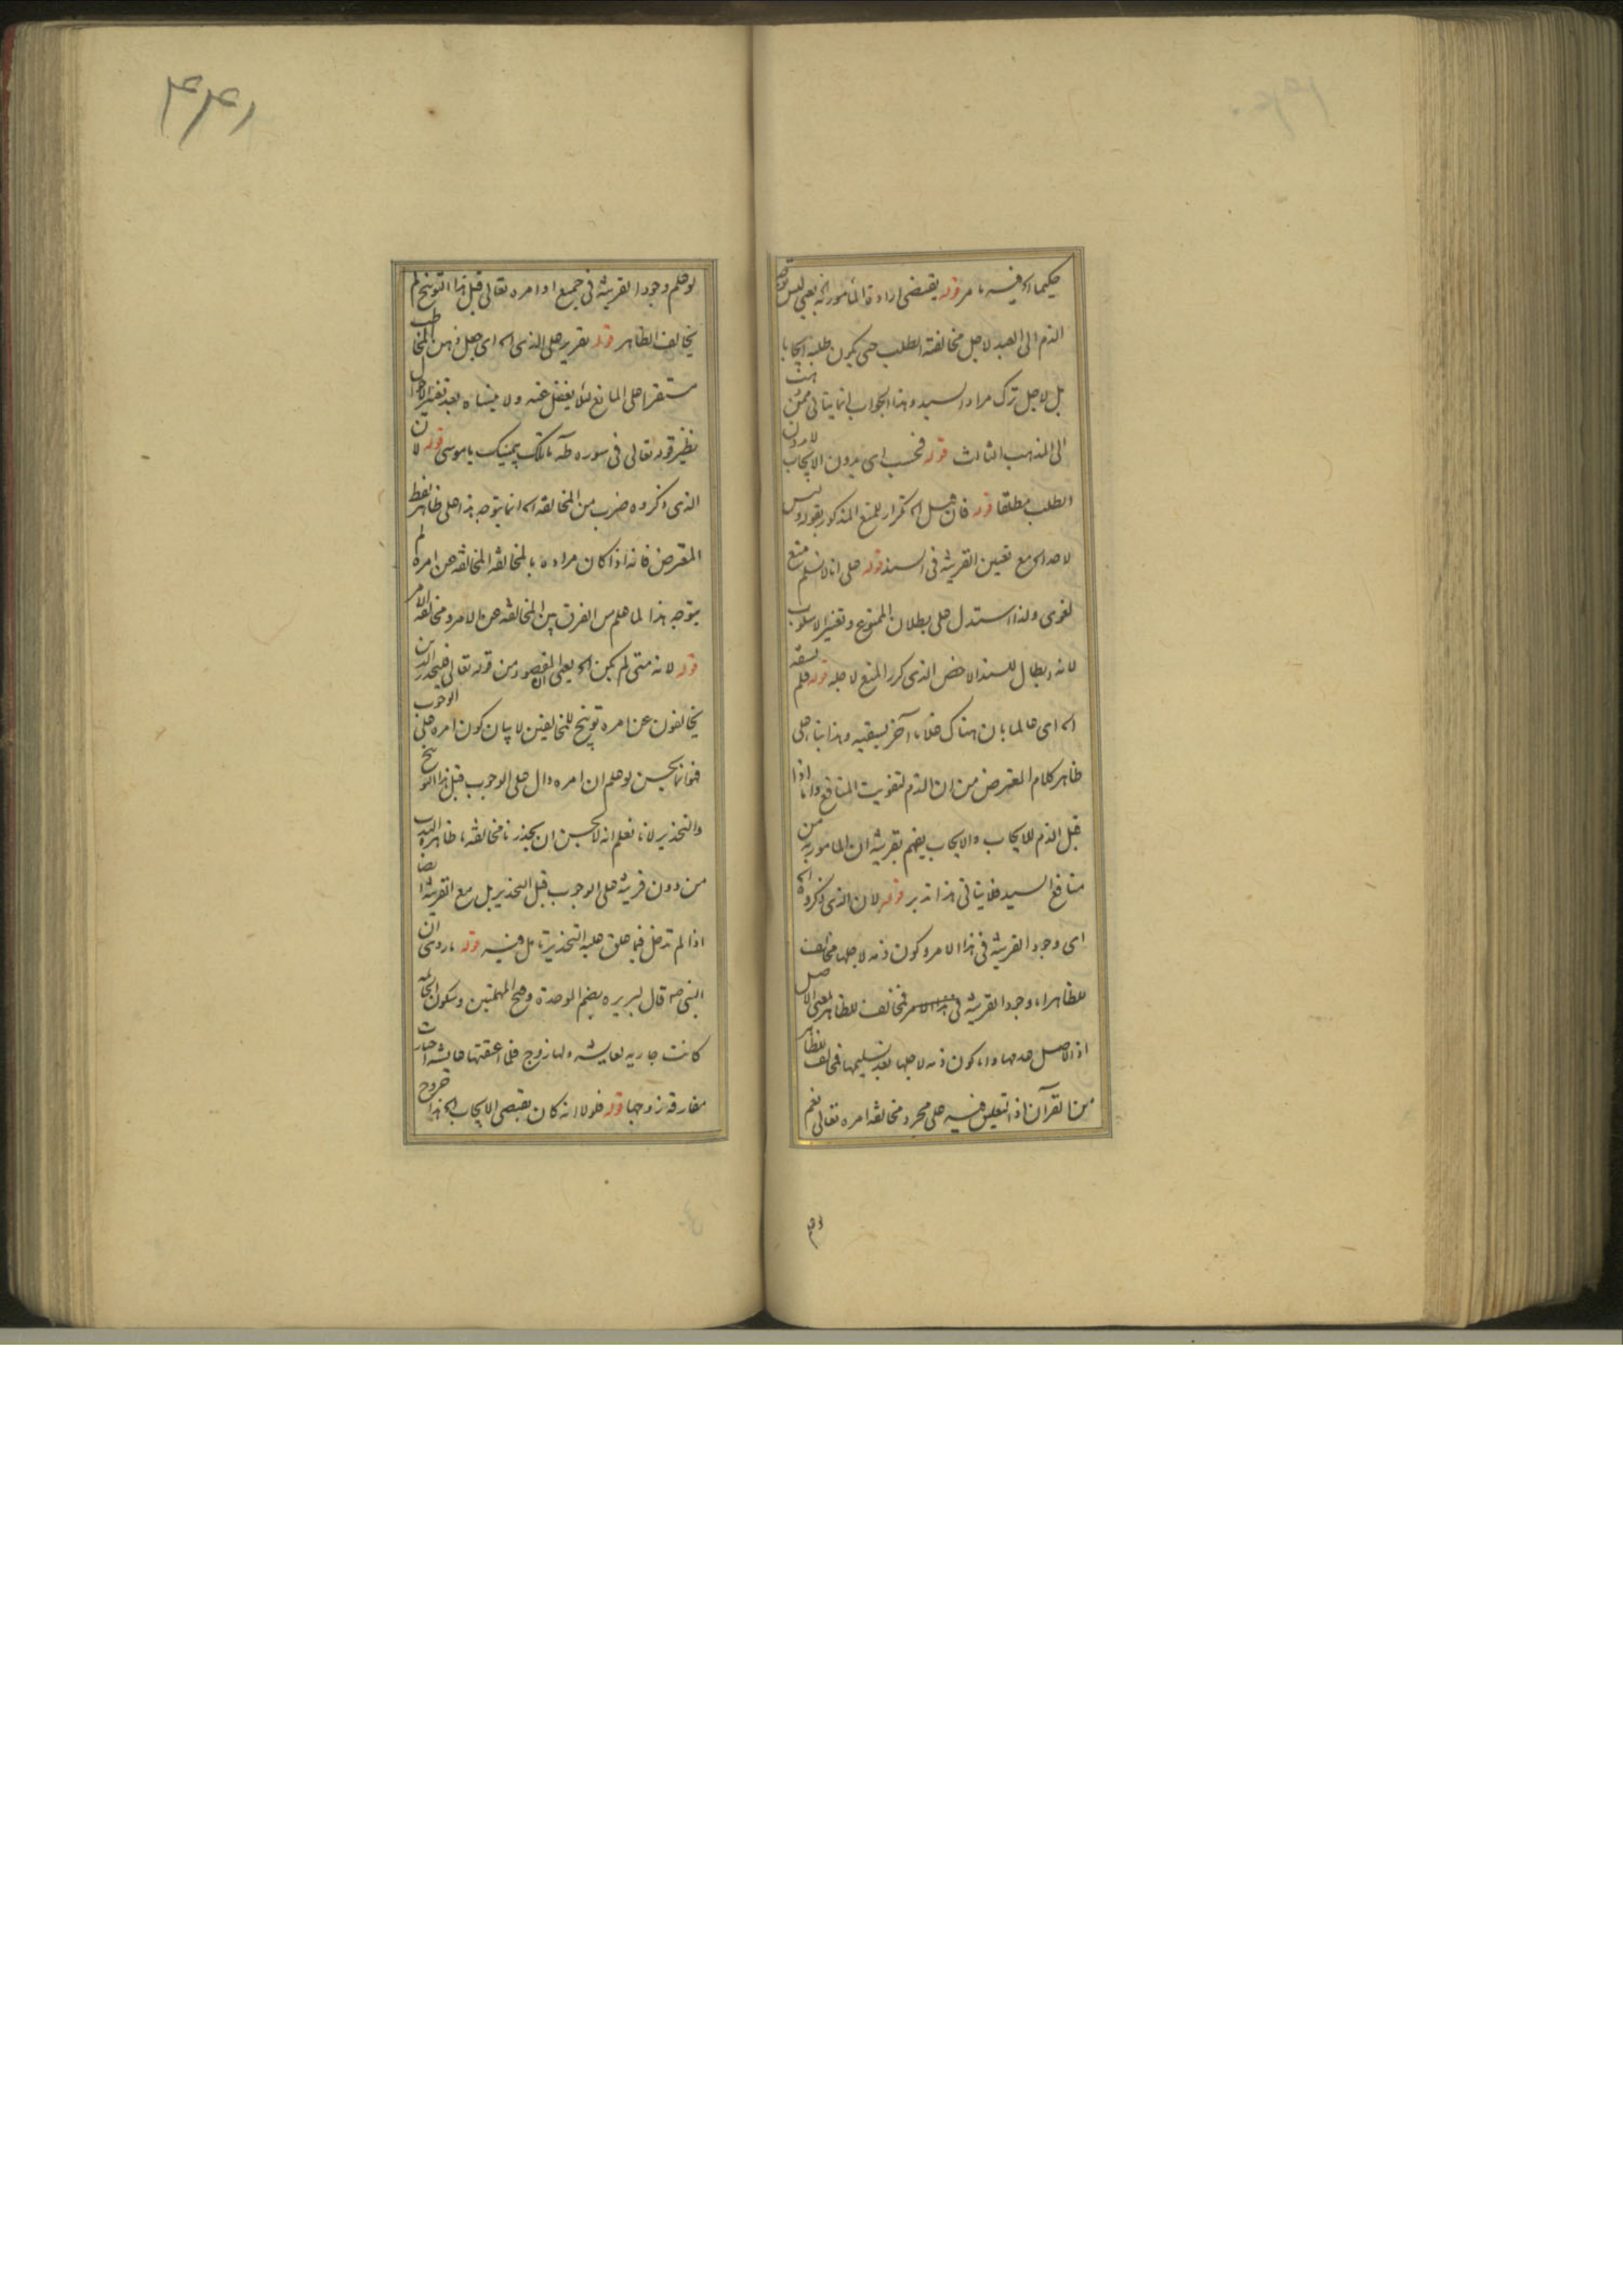 حکیما اه فیه ما مر قوله یقتضی ارادة المأمور به اه یعنی لیس توجه
الذم الی العبد لاجل مخالفته الطلب حتی یکون طلبه ایجابا
بل لاجل ترک مراد السید و هذا الجواب انما یتأتی ممن
الی المذهب الثالث قوله فحسب ای بدون الایجاب لا بدون
الطلب مطلقا قوله فان قیل اه تکرار للمنع المذکور بقوله ولیس
لاحد اه مع تعیین القرینة فی السند قوله علی انا لا نسلم منع
لغوی ولذا استدل علی بطلان الممنوع و تغییر الاسلوب
لانه ابطال للسند الاخص الذی کرر المنع لاجله قوله فلم
اه ای عالما بان هناک عقابا آخر یسبقه و هذا بناء علی
ظاهر کلام المعترض من ان الذم لتفویت المنافع و اما اذا
قبل الذم للایجاب والایجاب یفهم بقرینة ان المأمور به من
منافع السید فلا یتأتی هذا تدبر قوله لان الذی ذکروه اه
ای وجود القرینة فی هذا الامر و کون ذمه لاجلها مخالف
للظاهر اما وجود القرینة فی هذا الامر فمخالف للظاهر یعنی الاصل
اذ الاصل عدمها و اما کون ذمه لاجلها بعد تسلیمها فمخالف للظاهر
من القرآن اذ التعلیق فیه علی مجرد مخالفة امره تعالی نعم
۴۴۱
لو علم وجود القرینة فی جمیع اوامره تعالی قبل هذا التوبیخ لم
یخالف الظاهر قوله تقریر علی الذی اه ای جعل ذهن المخاطب
مستقرا علی المانع لئلا یغفل عنه و لا ینساه بعد تغیر الاحوال
نظیر قوله تعالی فی سورة طه ما تلک بیمینک یا موسی قوله لان
الذی ذکروه ضرب من المخالفة اه انما یتوجه هذا علی ظاهر لفظ
المعترض فانه اذا کان مراده بالمخالفة المخالفة عن امره لم
یتوجه هذا لما علم من الفرق بین المخالفة عن الامر و مخالفة الامر
قوله لانه متی لم یکن اه یعنی المقصود من قوله تعالی فلیحذر الذین
یخالفون عن امره توبیخ للمخالفین لا بیان کون امره علی الوجوب
فهو انما یحسن لو علم ان امره دال علی الوجوب قبل هذا التوبیخ
والتحذیر لانا نعلم انه لا یحسن ان یحذرنا مخالفة ما ظاهره الندب
من دون قرینة علی الوجوب قبل التحذیر بل مع القرینة ایضا
اذا لم تدخل فیما علق علیه التحذیر تأمل فیه قوله ما روی ان
النبی ص قال لبریرة بضم الموحدة و فتح المهملتین و سکون الخاتمة
کانت جاریة لعایشه و لها زوج فلما اعتقتها عایشة اختارت
مفارقة زوجها قوله فلولا انه کان یقتضی الایجاب اه هذا خروج